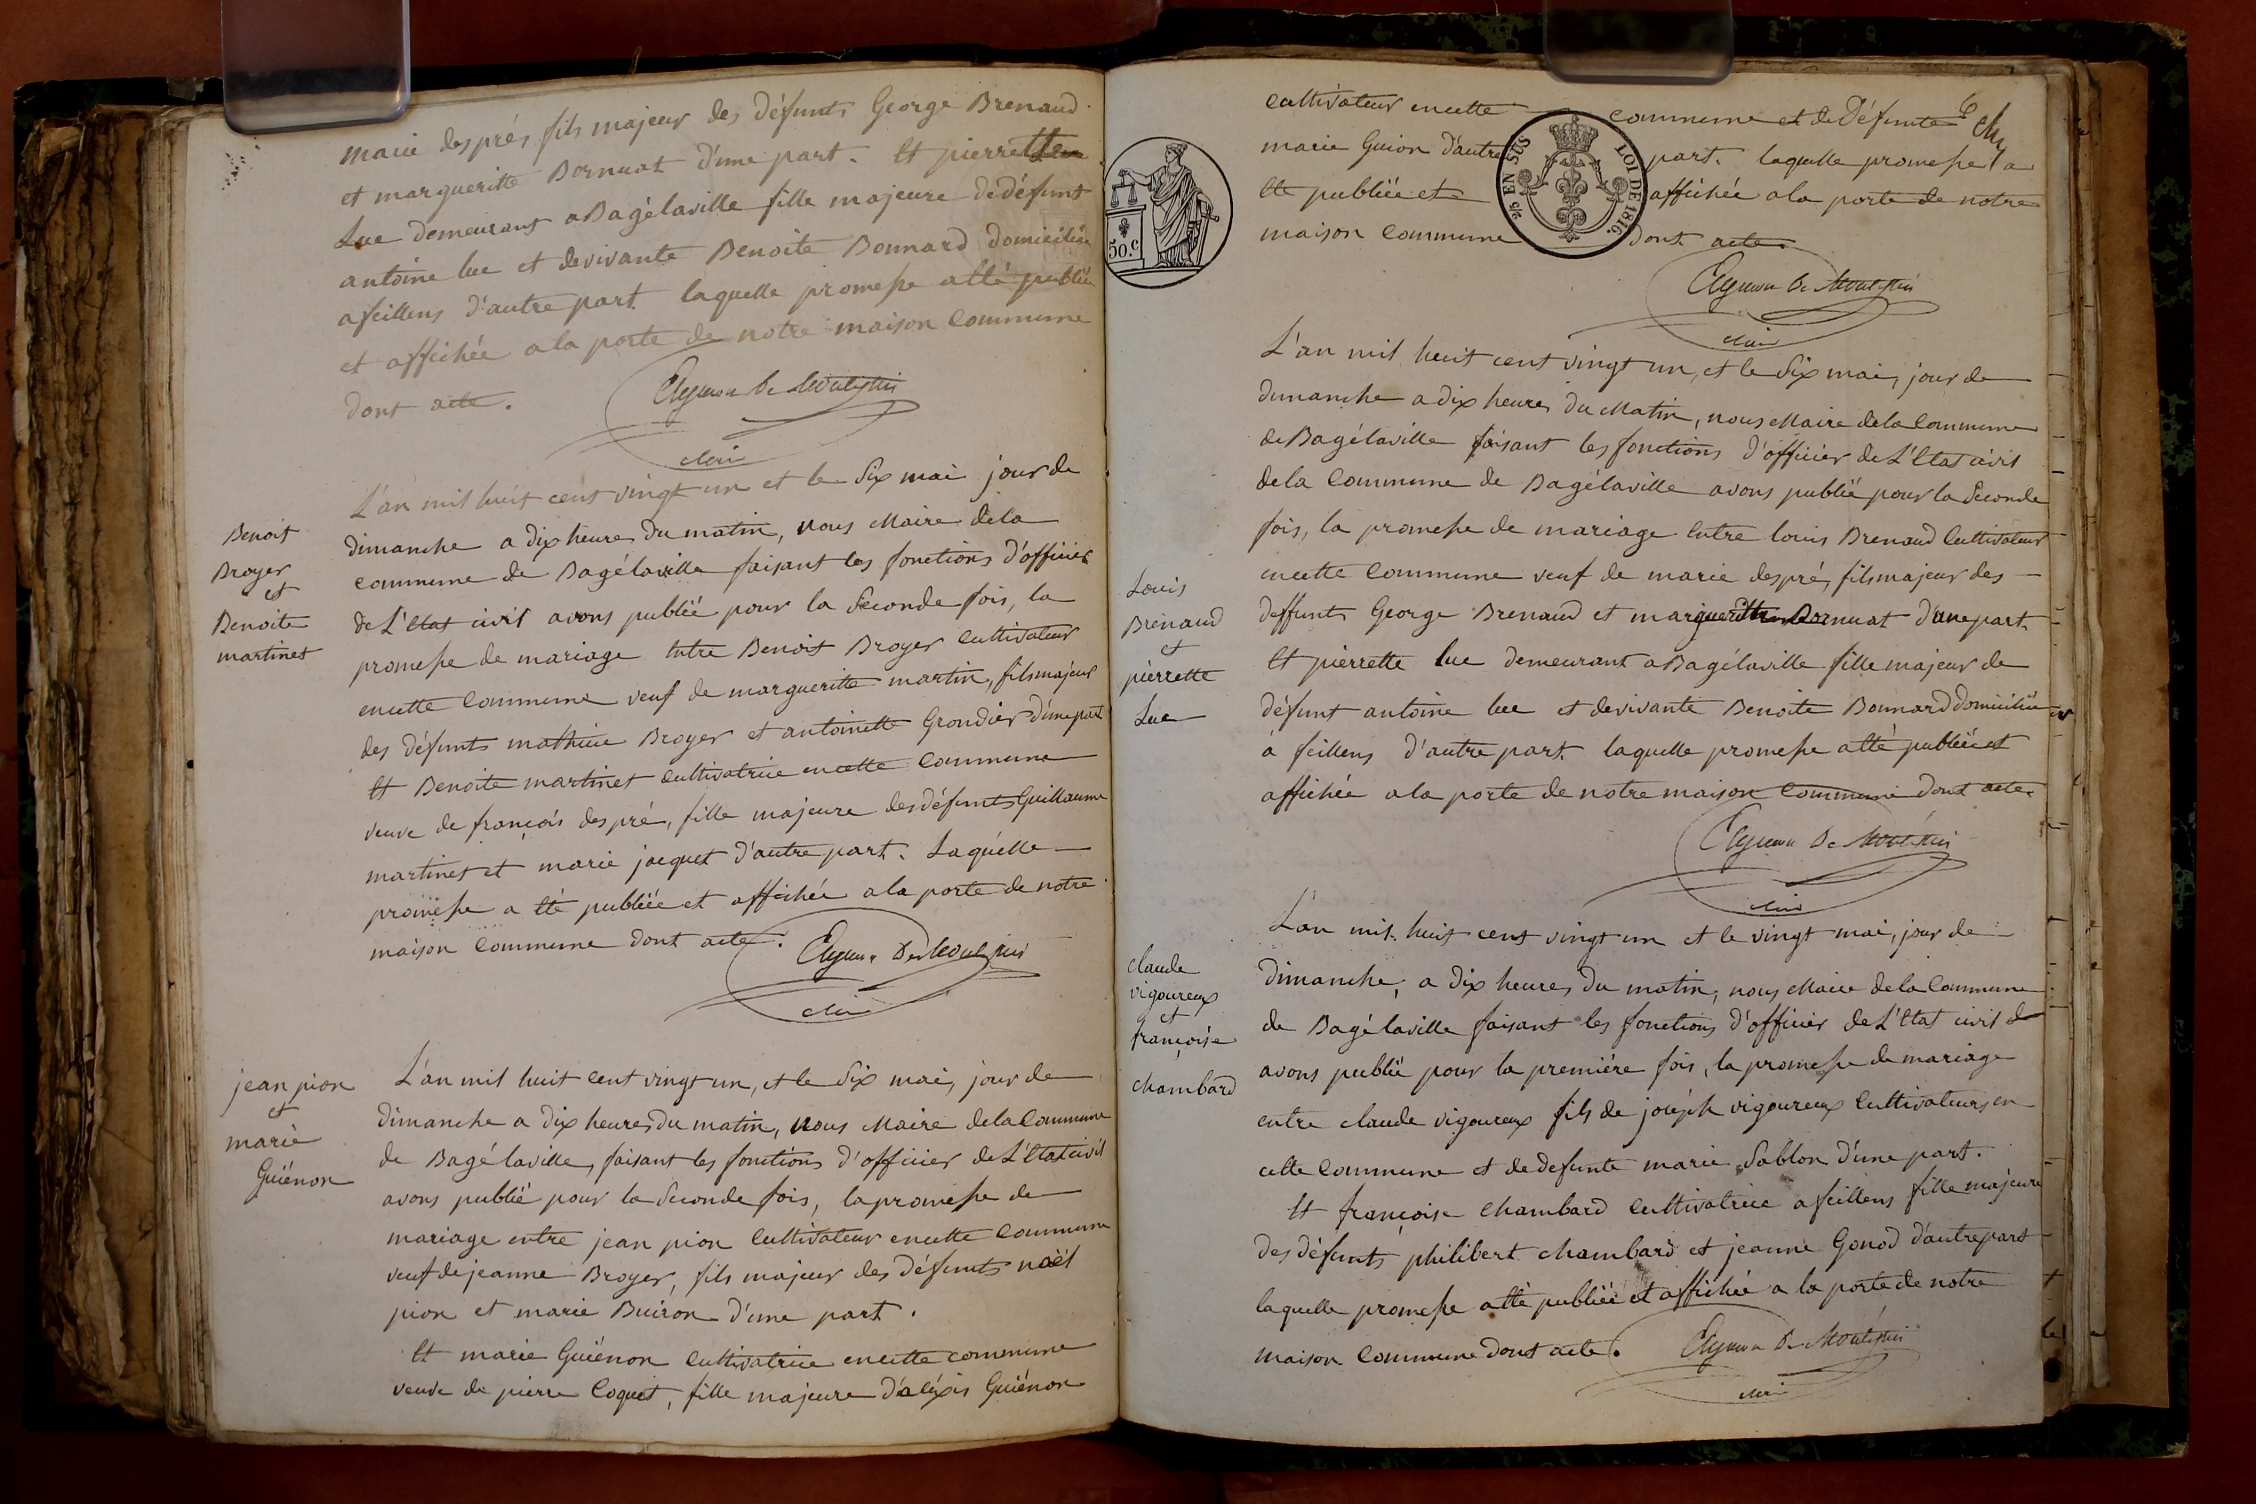 marie després fils majeur des défunts George Brenaud
et margueritte Bornuat d'une part. Et pierrette
Luc demeurant a Bagélaville fille majeure de défunt
antoine luc et de vivante Benoite Bonnard domiciliée
a feillens d'autre part laquelle promesse a été publiée
et affichée a la porte de notre maison commune
dont acte.
maire
Benoit
Broyer
et
Benoite
martinet
L'an mil huit cent vingt un et le Six mai jour de
dimanche a dix heures du matin, nous Maire de la
commune de Bagélaville faisant les fonctions d'officier
de L'Etat civil avons publié pour la Seconde fois, la
promesse de mariage Entre Benoit Broyer Cultivateur
en cette Commune veuf de margueritte martin, fils majeur
des défunts mathieu Broyer et antoinette Grondier d'une part
Et Benoite martinet cultivatrice en cette Commune
veuve de françois despré, fille majeure des défunts Guillaume
martinet et marie jacquet d'autre part. Laquelle
promesse a été publiée et affichée a la porte de notre
maison Commune dont acte.
maire
jean pion
et
marie
Guiénon
L'an mil huit cent vingt un, et le Six mai, jour de
dimanche a dix heures du matin, nous Maire de la Commune
de Bagélaville, faisant les fonctions d'officier de L'Etat civil
avons publié pour la Seconde fois, la promesse de
mariage entre jean pion Cultivateur en cette Commune
veuf de jeanne Broyer, fils majeur des défunts noël
pion et marie Buiron d'une part.
Et marie Guiénon Cultivatrice en cette commune
veuve de pierre Coquet, fille majeure d'aléxis Guiénon
cultivateur en cette commune et de Défunte
marie Guion d'autre part. laquelle promesse a
été publiée et affichée a la porte de notre
maison Commune dont acte.
50.c
2/5 EN SUS
LOI DE 1816.
maire
Louis
Brenaud
et
pierrette
Luc
L'an mil huit cent vingt un, et le Six mai, jour de
dimanche a dix heures du Matin, nous Maire de la Commune
de Bagélaville faisant les fonctions d'officier de L'Etat civil
de la Commune de Bagélaville avons publié pour la Seconde
fois, la promesse de mariage entre louis Brenaud Cultivateur
en cette Commune veuf de marie despré, fils majeur des
deffunts George Brenaud et margueritte Bornuat d'une part
Et pierrette luc demeurant a Bagélaville fille majeur de
défunt antoine luc et de vivante Benoite Bonnard domiciliée
à feillens d'autre part. laquelle promesse a été publiée et
affichée a la porte de notre maison Commune dont acte.
maire
claude
vigoureux
et
françoise
chambard
L'an mil huit cent vingt un et le vingt mai, jour de
dimanche, a dix heures du matin, nous Maire de la Commune
de Bagélaville faisant les fonctions d'officier de L'Etat civil
avons publié pour la première fois, la promesse de mariage
entre claude vigoureux fils de joséph vigoureux Cultivateurs en
cette Commune et de defunte marie Sablon d'une part.
Et françoise Chambard Cultivatrice a feillens fille majeure
des défunts philibert chambard et jeanne Gonod d'autre part
laquelle promesse a été publiée et affichée a la porte de notre
maison Commune dont acte.
maire